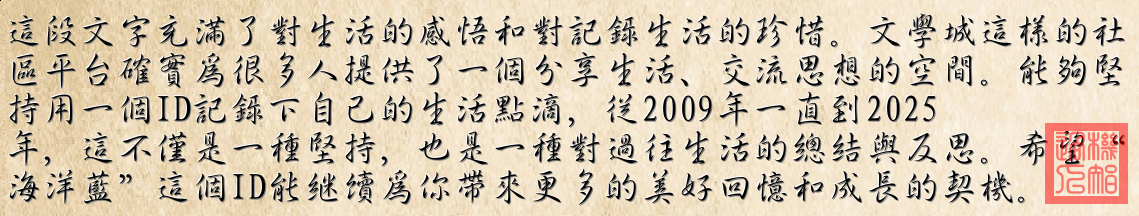 這段文字充滿了對生活的感悟和對記錄生活的珍惜。文學城這樣的社
區平台確實為很多人提供了一個分享生活、交流思想的空間。能夠堅
持用一個ID記錄下自己的生活點滴，從2009年一直到2025
年，這不僅是一種堅持，也是一種對過往生活的總結與反思。希望“
海洋藍”這個ID能继續為你帶來更多的美好回憶和成長的契機。